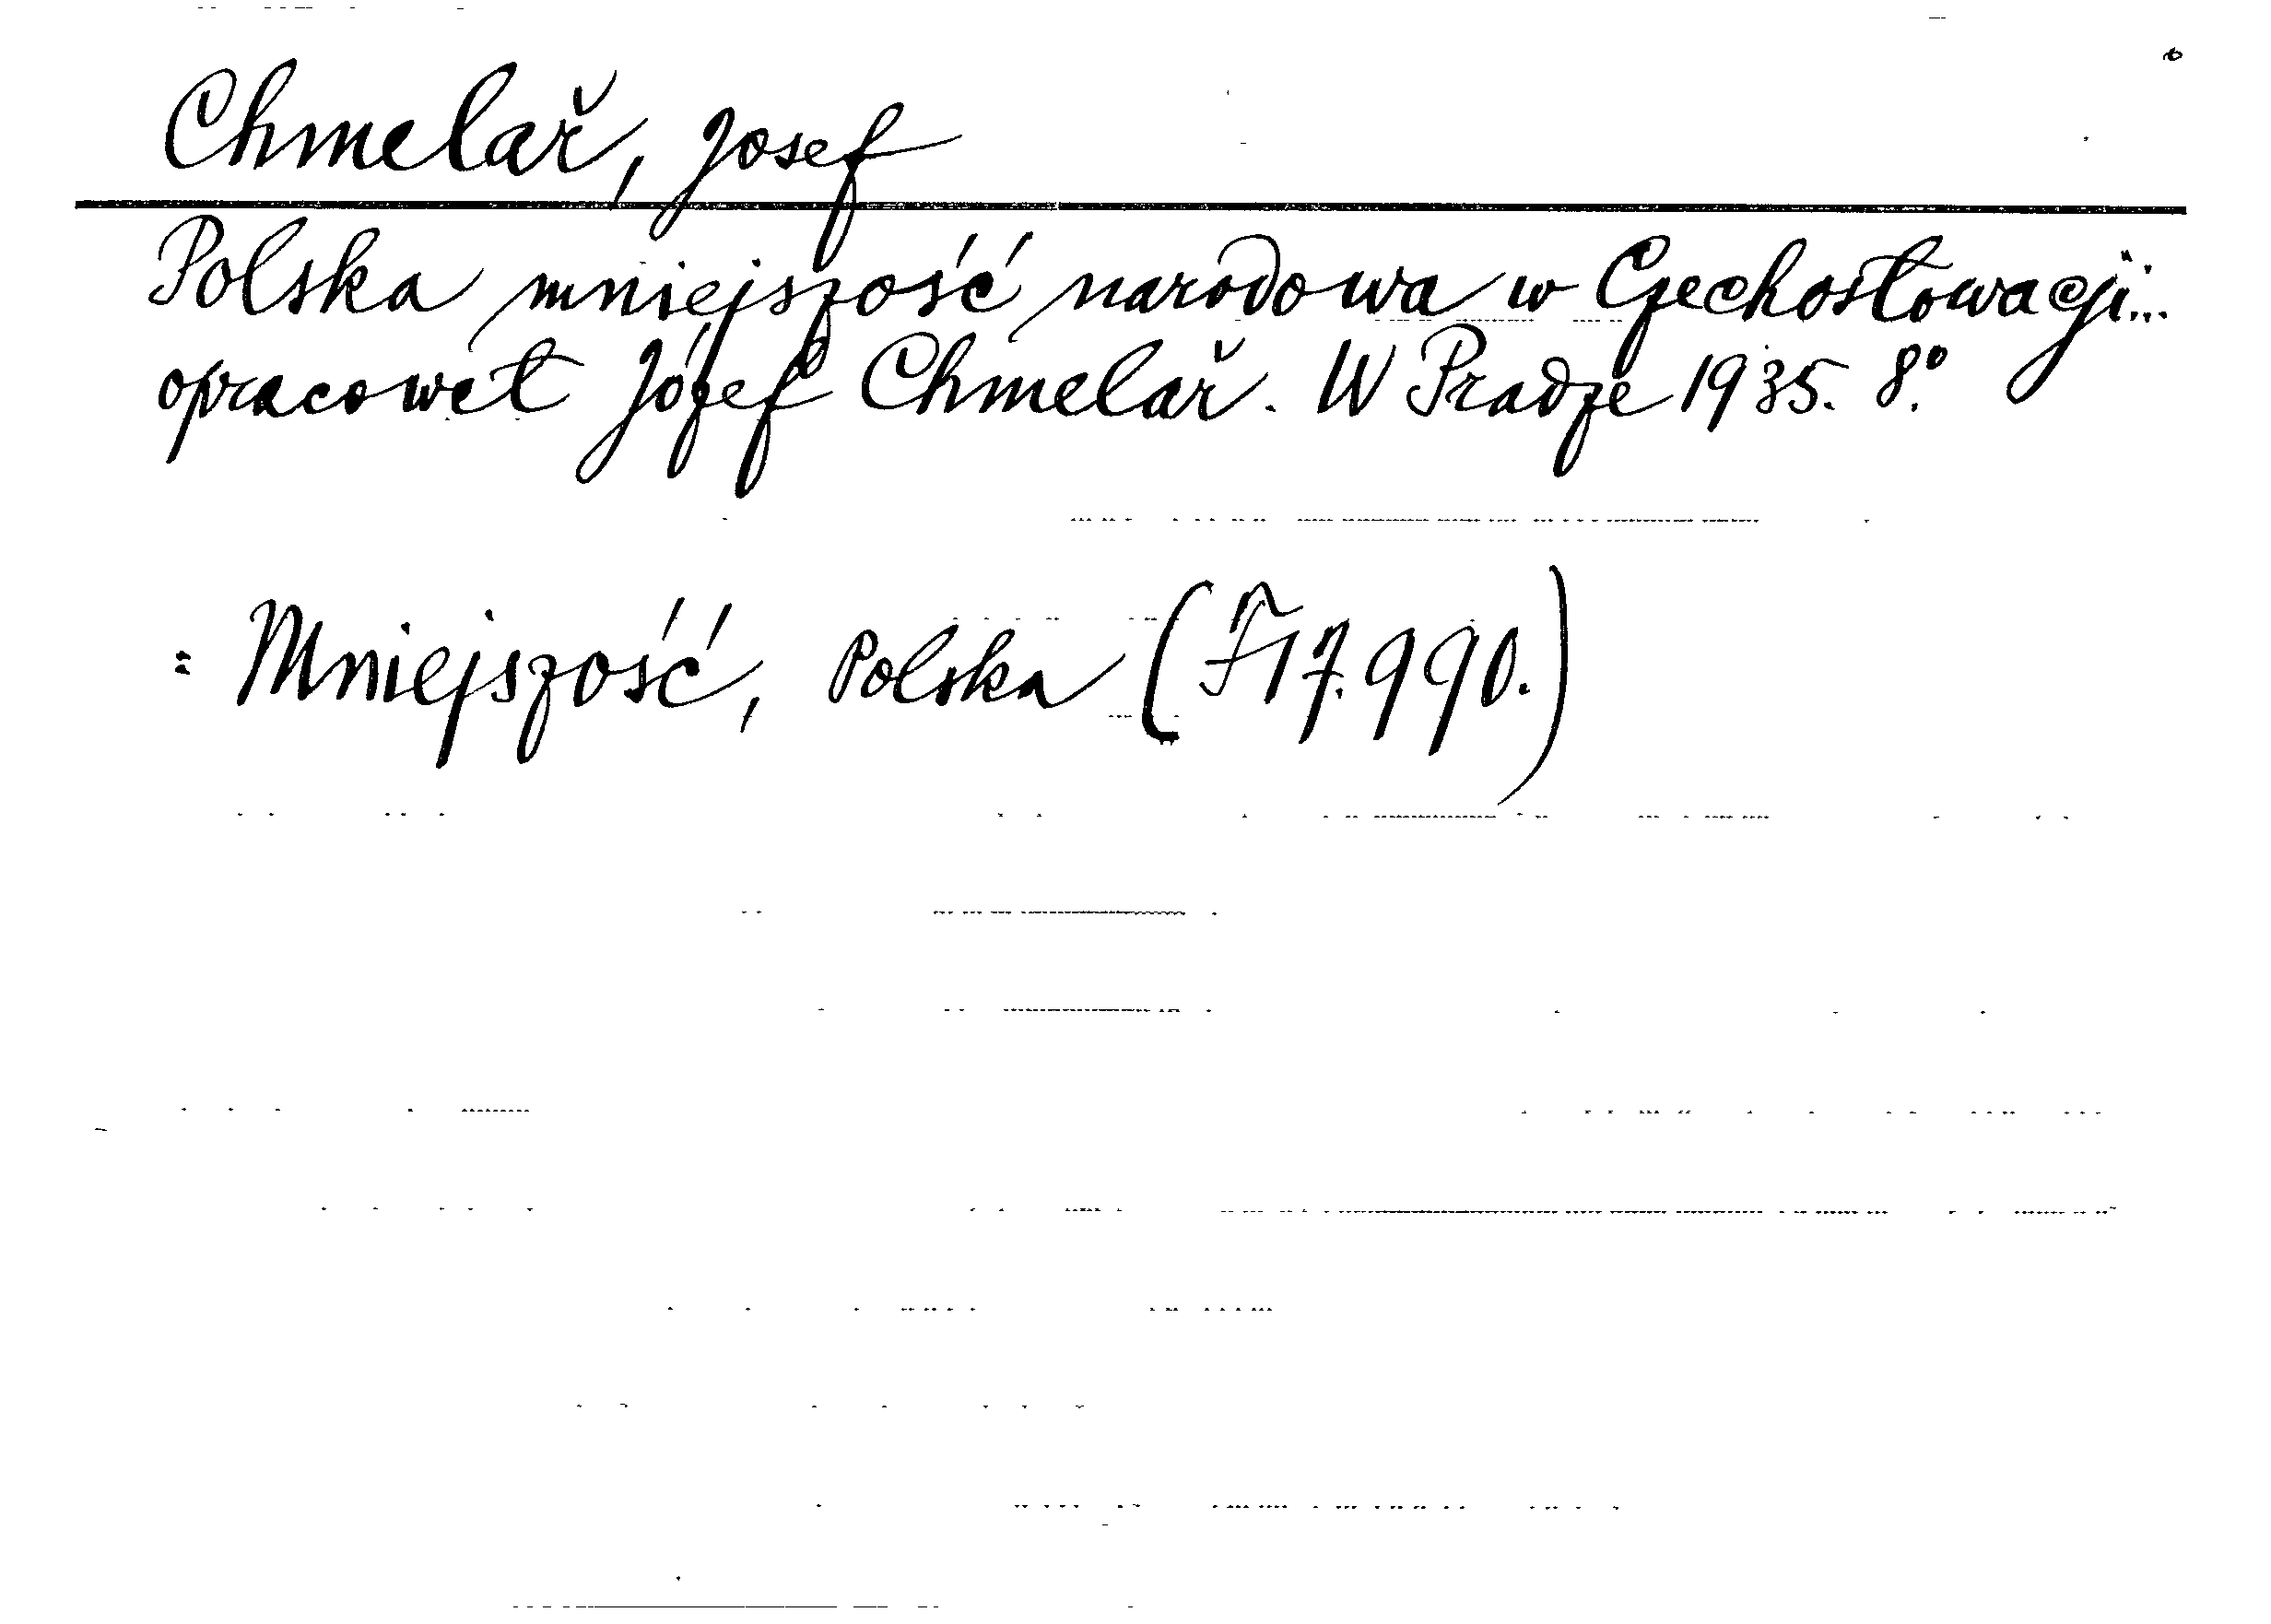 Chmelař, Josef
Polska mniejszość narodowa w Czechosłowacji...
opracował Józef Chmelař. W Pradze 1935. 8°.
= Mniejszość, Polska (F17.990.)